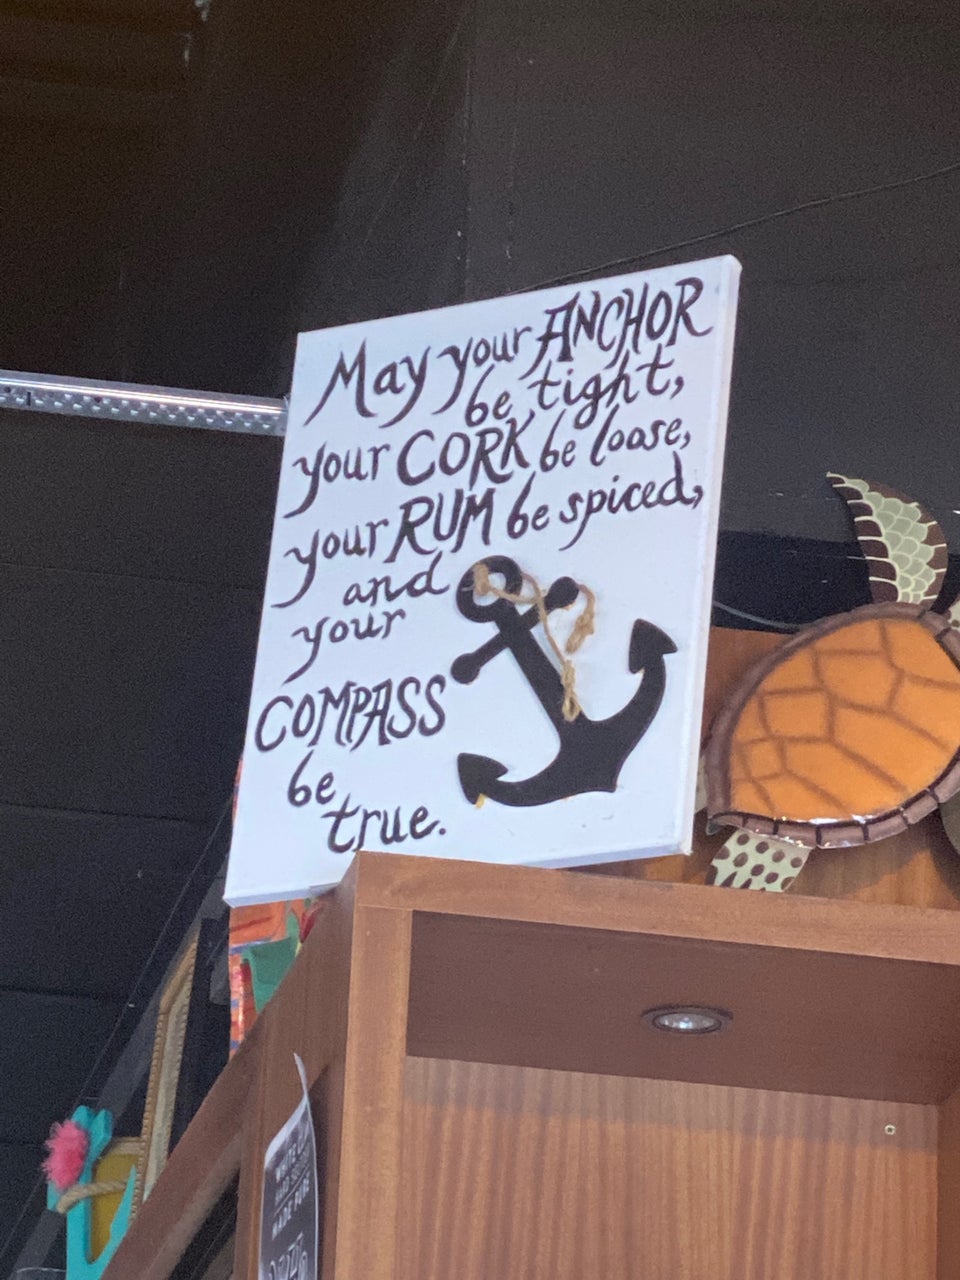 May your ANCHOR
be tight,
your CORK be loose,
your RUM be spiced,
and
your
COMPASS
be
true.
WHITE
MADE PURE